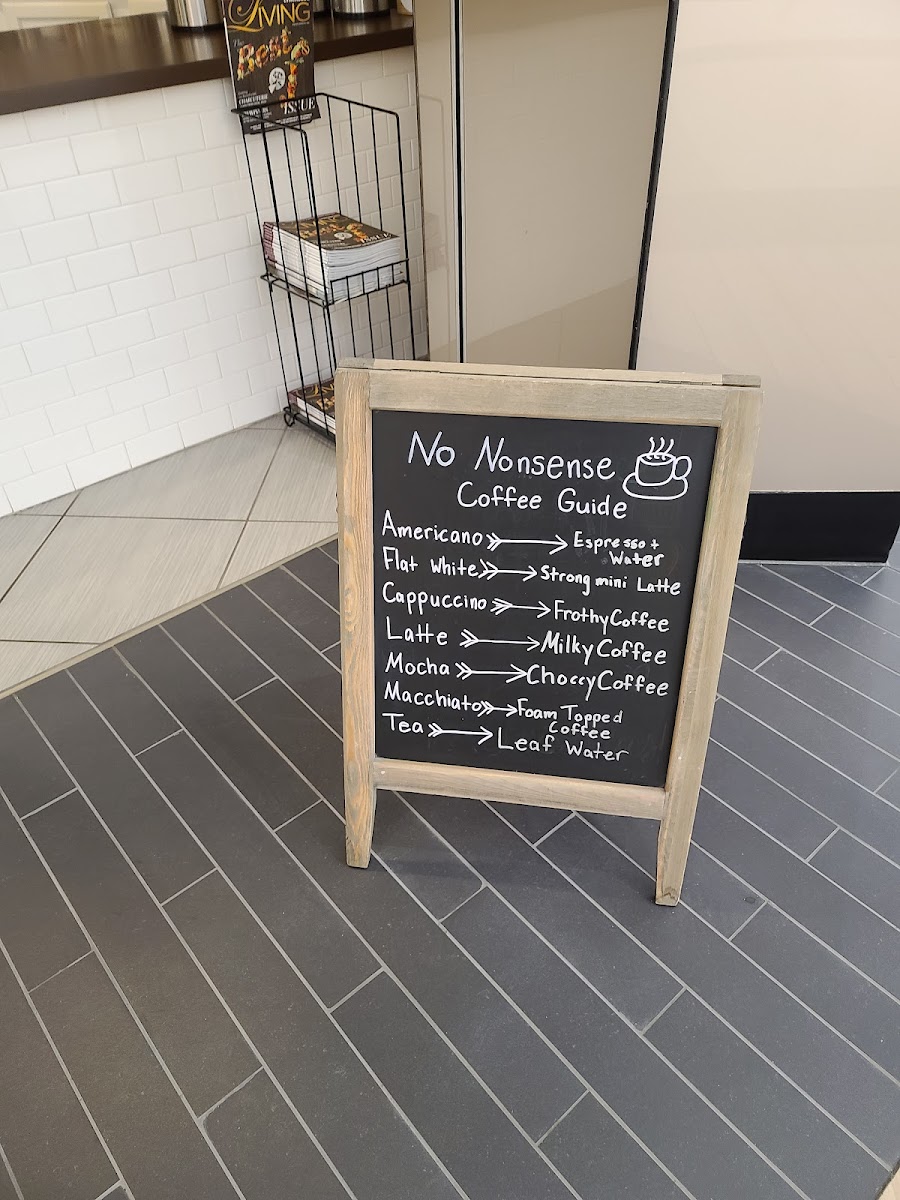 LIVING
Best
ISSUE
No Nonsense
Coffee Guide
Americano Espresso +
Water
Flat White Strong mini Latte
Cappuccino Frothy Coffee
Latte Milky Coffee
Mocha Choccy Coffee
Macchiato Foam Topped
Coffee
Tea Leaf Water